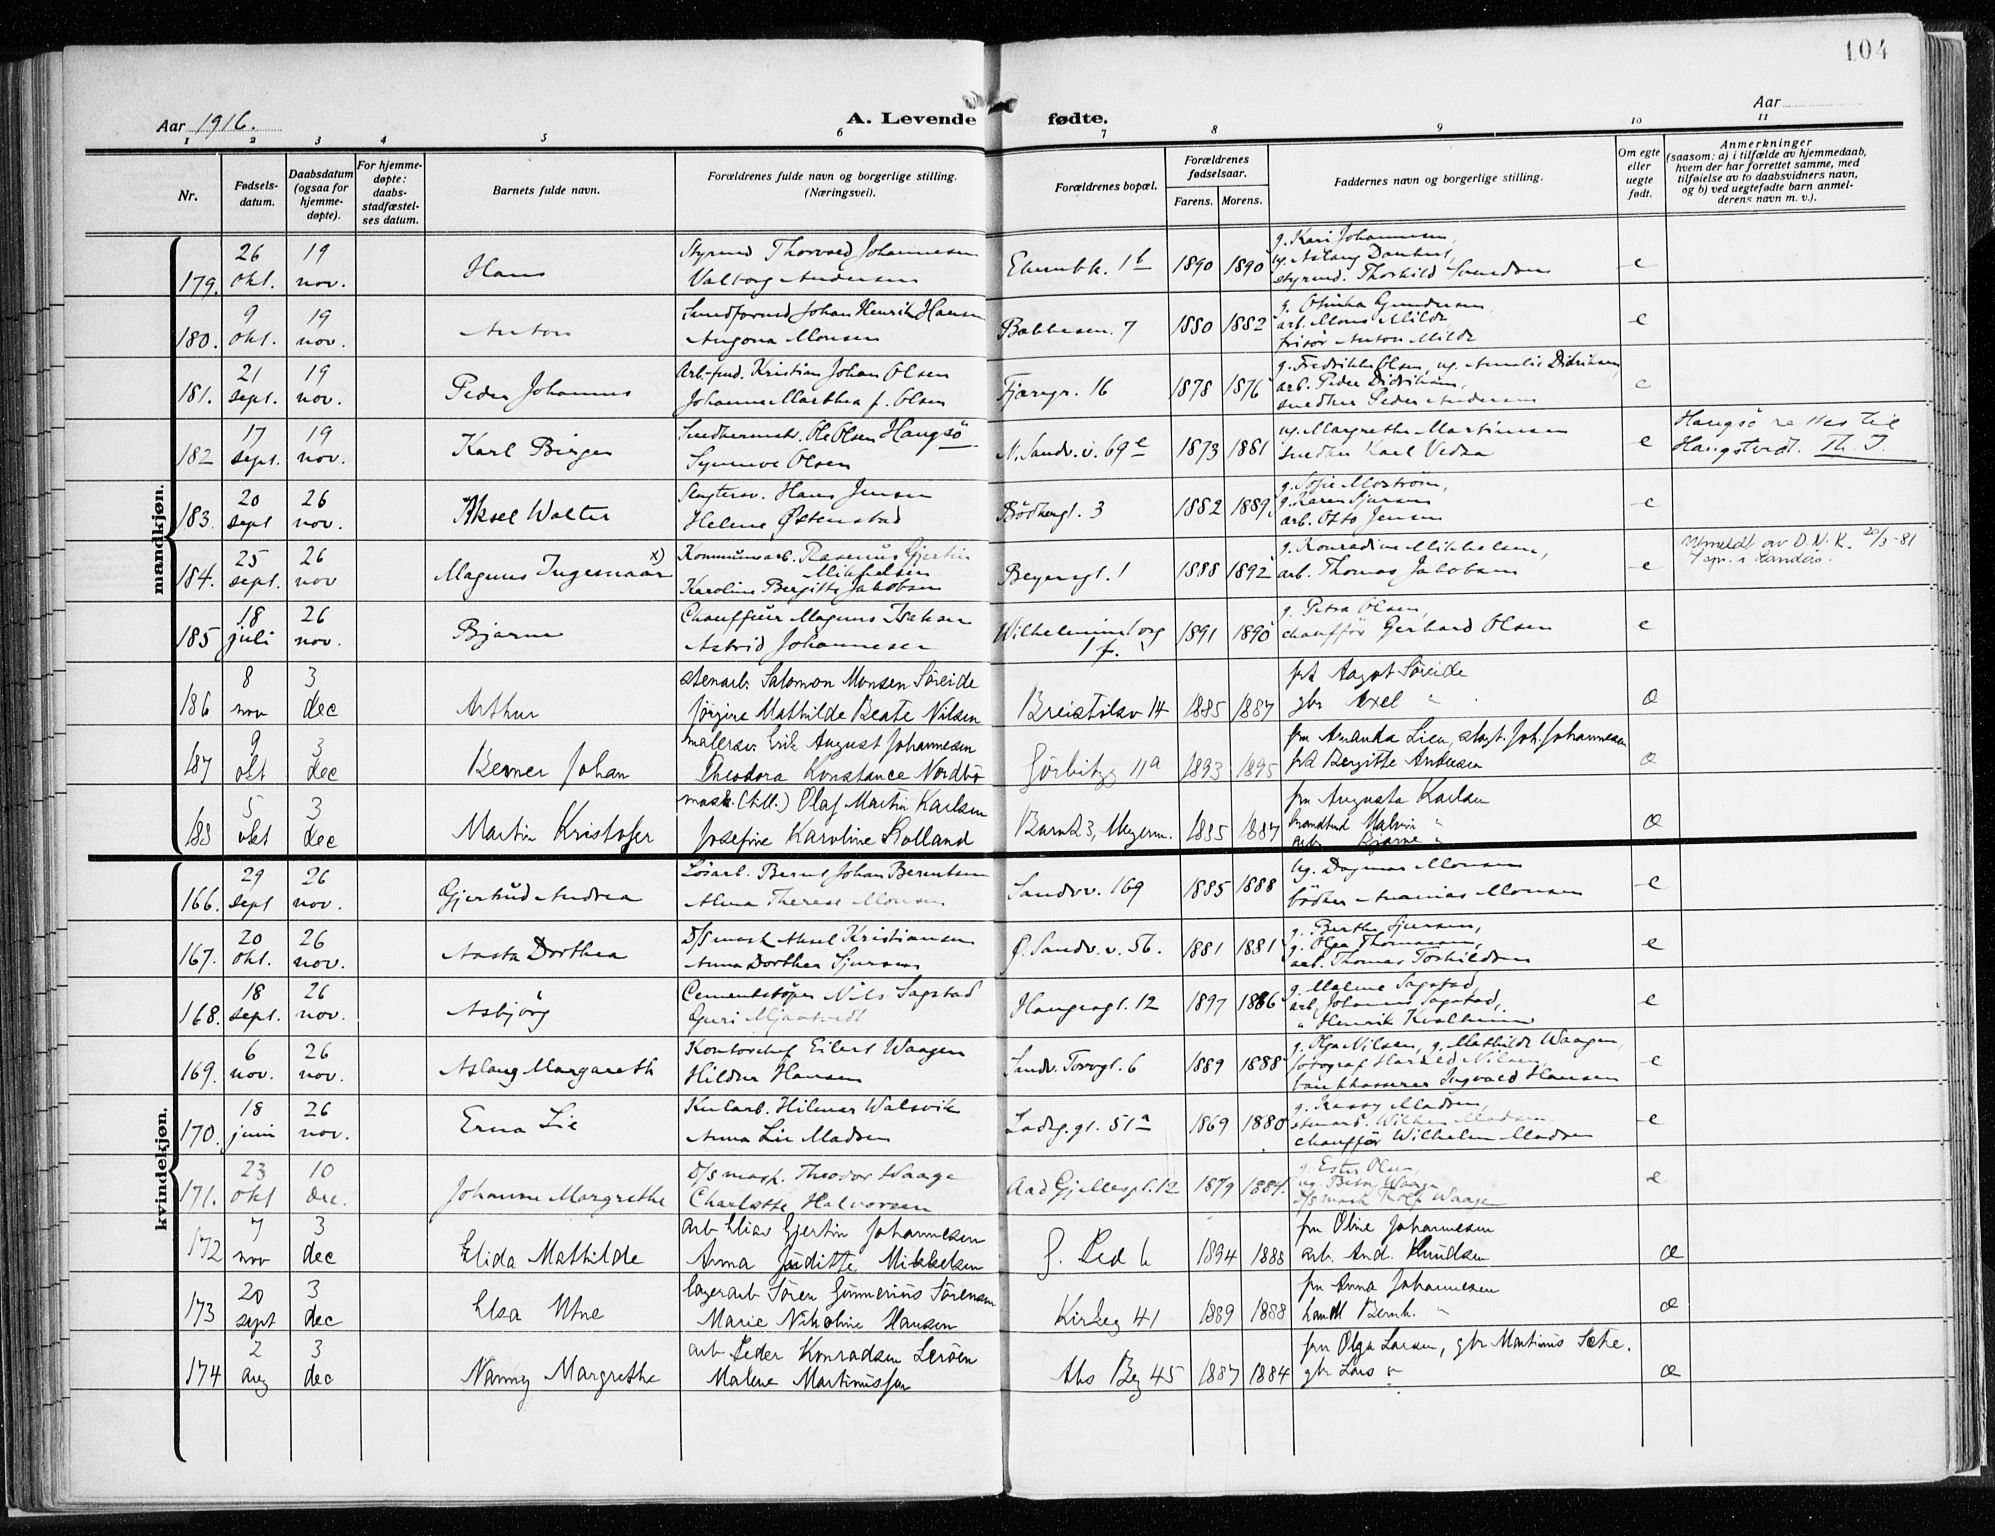 104
Aar 1916.
A. Levende fødte.
Aar
1 2 3 4 5 6 7 8 9 10 11
Nr.
Fødsels-
datum.
Daabsdatum
(ogsaa for
hjemme-
døpte).
For hjemme-
døpte:
daabs-
stadfæstel-
ses datum.
Barnets fulde navn.
Forældrenes fulde navn og borgerlige stilling.
(Næringsvei).
Forældrenes bopæl.
Forældrenes
fødselsaar.
Farens. Morens.
Faddernes navn og borgerlige stilling.
Om egte
eller
uegte
født.
Anmerkninger
(saasom: a) i tilfælde av hjemmedaab,
hvem der har forrettet samme, med
tilføielse av to daabsvidners navn,
og b) ved uegtefødte barn anmel-
derens navn m. v.).
mandkjøn.
179. 26 okt. 19 nov. Hans
Styrmd Thorvald Johannesen
Valborg Andersen
1b 1890 1890
g. Kari Johannesen,
ug. Aslaug
styrmd. Thorbild Svendsen
e
180. 9 okt. 19 nov. Anton
Johan Henrik Hansen
Augona Monsen
7 1880 1882
g. Gundersen,
arb. Mons Milde
frisør Anton Milde
e
181. 21 sept. 19 nov. Peder Johannes
Kristian Johan Olsen
Johanne Marthea f. Olsen
Fjæregr. 16 1878 1876
g. Fredrikke Olsen, ug. Amalie Didriksen,
arb. Peder Didriksen,
snedker Peder Andersen
e
182 17 sept. 19 nov. Karl Birger
Snedkermstr. Ole Olsen Haugsø
Synneve Olsen
N. Sandv.v. 69e 1873 1881
ug. Margrethe Martinsen
snedker Karl Vedaa
e
Haugsø rettes til
Haugstvedt. Th. J.
183. 20 sept 26 nov. Aksel Walter
Slagtersv. Hans Jensen
Helene Østenstad
Bødkergt. 3 1882 1889
g. Sofie Mostrøm,
g. Karen Sjursen
arb. Otto Jensen
e
184. 25 sept. 26 nov Magnus Ingemaar x)
Kommunearb. Rasmus Gjertin
Mikkelsen
Karoline Bergitte Jakobsen
Beyergt. 1 1888 1892
g. Konradine Mikkelsen,
arb. Thomas Jakobsen
e
Utmeldt av D.N.K. 20/3-81
185. 18 juli 26 nov. Bjarne
Chauffeur Magnus Isaksen
Astrid Johannesen
Wilhelminborg
1f. 1891 1890
g. Petra Olsen,
chauffør Gerhard Olsen
e
186 8 nov 3 dec Arthur
stenarb. Salomon Monsen Søreide
Jørgine Mathilde Beate Nilsen
Breistølsv 14 1885 1887
frk Aagot Søreide
gbr Axel "
æ
187 9 okt 3 dec Berner Johan
malersv. Erik August Johannesen
Theodora Konstance Nordbø
11a 1893 1895
fru Amanda Lien, slagt. Joh. Johannesen
frk Bergitte Andersen
æ
188 5 okt 3 dec Martin Kristofer
mask. (till.) Olaf Martin Karlsen
Josefine Karoline Rolland
1885 1887
fru Augusta Karlsen
Malvin "
arb Bjarne "
æ
kvindekjøn.
166. 29 sept 26 nov. Gjertrud Andrea
Løsarb. Bernt Johan Berntsen
Alma Therese Monsen
Sandvv. 169 1885 1888
ug. Dagmar Monsen
bødker Ananias Monsen
e
167. 20 okt. 26 nov. Aasta Dorthea
D/S mask Aksel Kristiansen
Anna Dorthea Sjursen
Ø. Sandv.v. 56. 1881 1881
g. Berthe Sjursen,
g. Olga Thomassen,
arb. Thomas Torkildsen
e
168. 18 sept. 26 nov. Asbjørg
Cementstøper Nils Sagstad
Guri Mjaatvedt
Haugegt. 12 1897 1886
g. Malene Sagstad,
arb. Johannes Sagstad,
" Henrik Kvalheim
e
169. 6 nov. 26 nov. Aslaug Margareth
Kontorchef Eilert Waagen
Hildur Hansen
Sandv. Torvgt. 6 1889 1888
g. Olga Nilsen, g. Mathilde Waagen,
fotograf Harald Nilsen,
bankkasserer Ingvald Hansen
e
170. 18 juni 26 nov. Erna Lie
Kularb. Hilmar Walsvik
Anna Lie Madsen
Ladeg.gt. 51a 1869 1880
g. Kassy Madsen,
stenarb. Wilhem Madsen
chauffør Wilhelm Madsen
e
171. 23 okt 10 dec. Johanne Margrethe
D/S mask. Theodor Waage
Charlotte Halvorsen
Aad Gjellesgt. 12 1879 1884.
g. Ester Olsen,
ug. Betsy Waage
D/S mask Rolf Waage
e
172 7 nov 3 dec Elida Mathilde
arb Elias Gjertin Johannesen
Anna Juditte Mikkelsen
6 1894 1888
fru Oline Johannesen
arb. And. Knudsen
æ
173 20 sept 3 dec Elsa Utne
lagerarb Søren Gunnerius Sørensen
Marie Nikoline Hansen
Kirkeg 41 1889 1888
fru Anna Johannesen
handl Bernh. "
æ
174 2 aug 3 dec Nanny Margrethe
arb Peder Konradsen Lerøen
Malene Martinussen
45 1887 1884
fru Olga Larsen, gbr Martinus Sæte.
gbr Lars "
æ